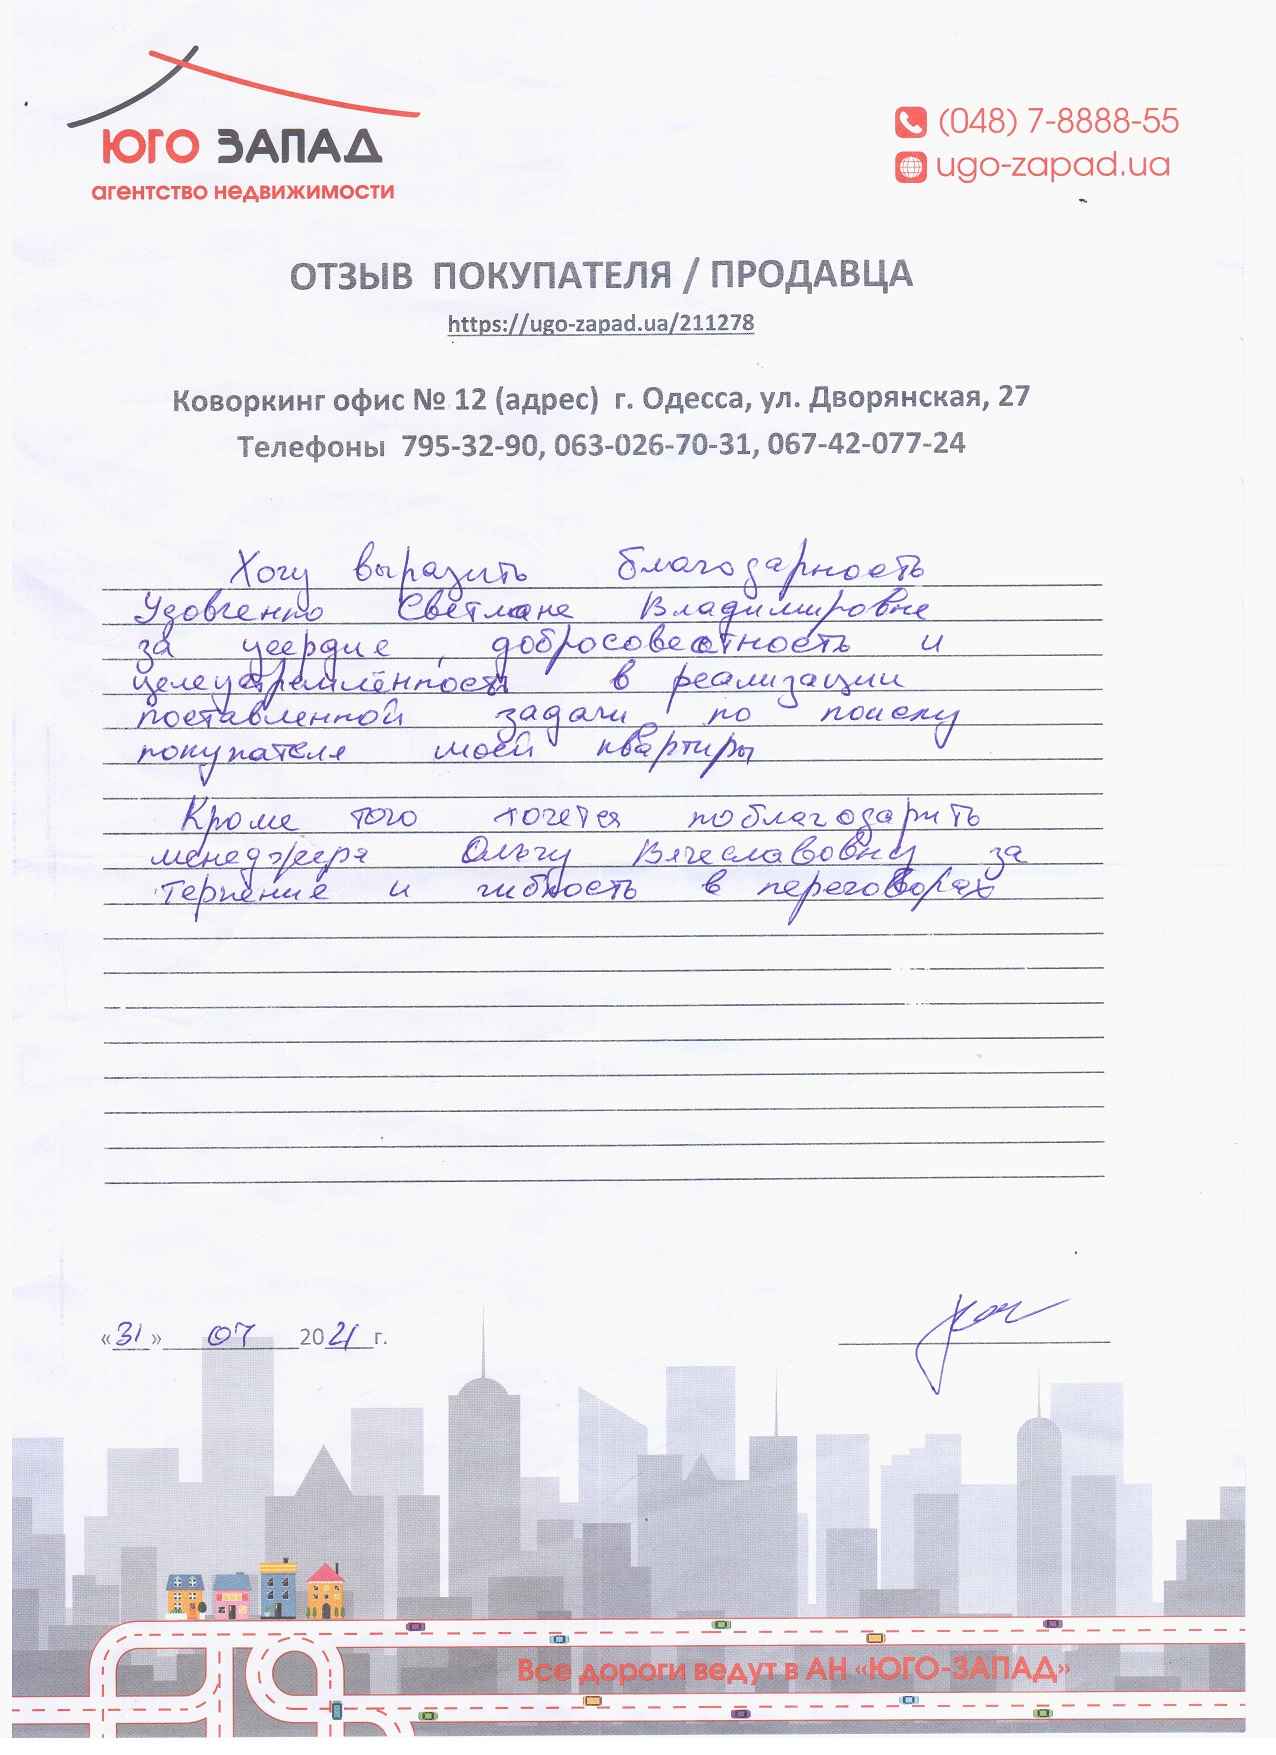 ЮГО ЗАПАД
агентство недвижимости
(048) 7-8888-55
ugo-zapad.ua
ОТЗЫВ ПОКУПАТЕЛЯ / ПРОДАВЦА
https://ugo-zapad.ua/211278
Коворкинг офис № 12 (адрес) г. Одесса, ул. Дворянская, 27
Телефоны 795-32-90, 063-026-70-31, 067-42-077-24
Хочу выразить благодарность
Удовченко Светлане Владимировне
за усердие, добросовестность и
целеустремлённость в реализации
поставленной задачи по поиску
покупателя моей квартиры
Кроме того хочется поблагодарить
менеджера Ольгу Вячеславовну за
терпение и гибкость в переговорах
«31» 07 2021 г.
Все дороги ведут в АН «ЮГО-ЗАПАД»